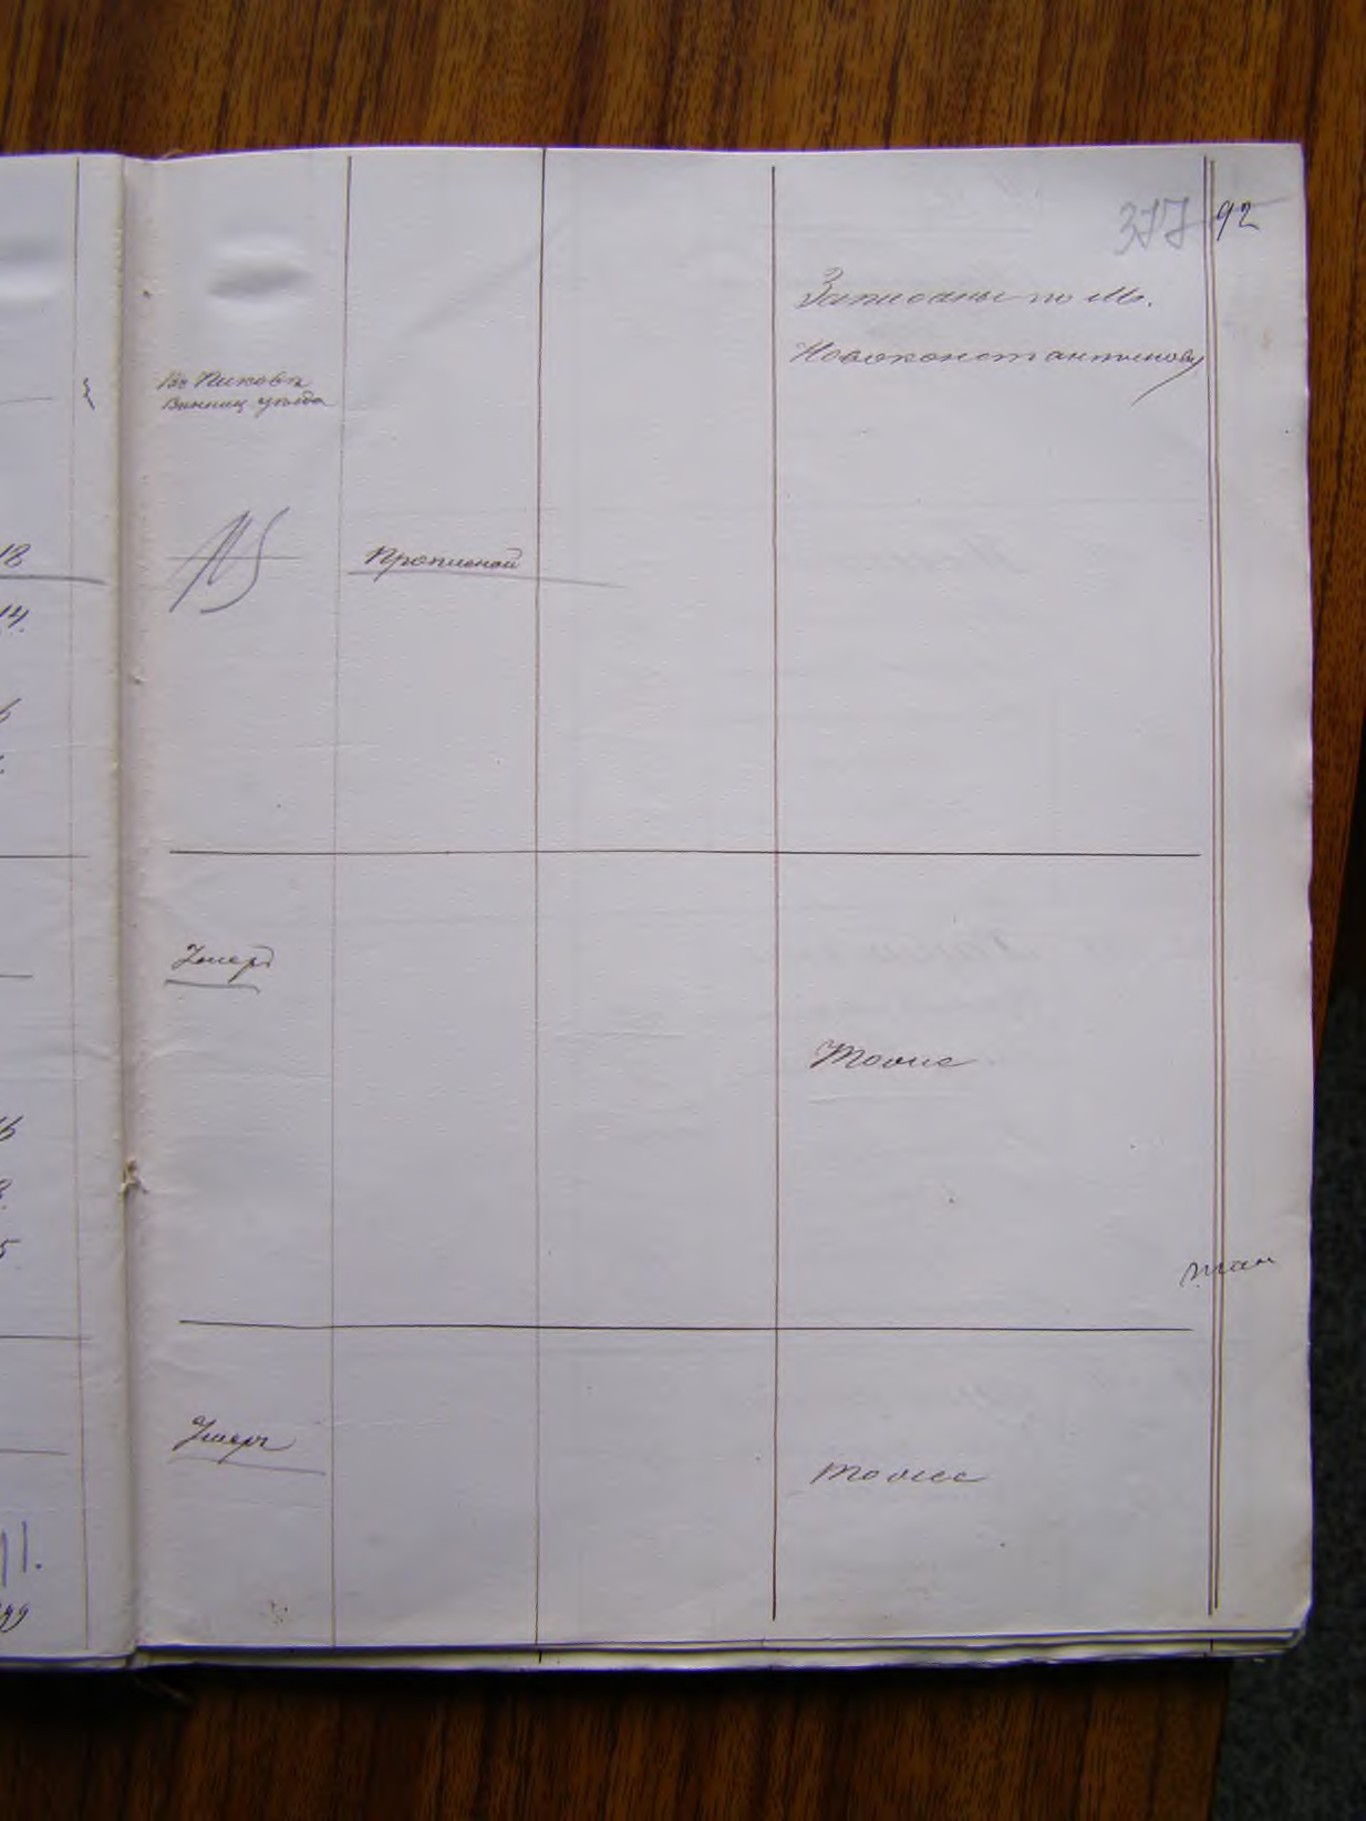 377 92
Записаны по М.
Новоконстантинову
Въ Пиковѣ
Винниц. уѣзда
18
Прописной
14.
6
Умеръ
Тоже
16
8.
5
Умеръ
Тоже
11.